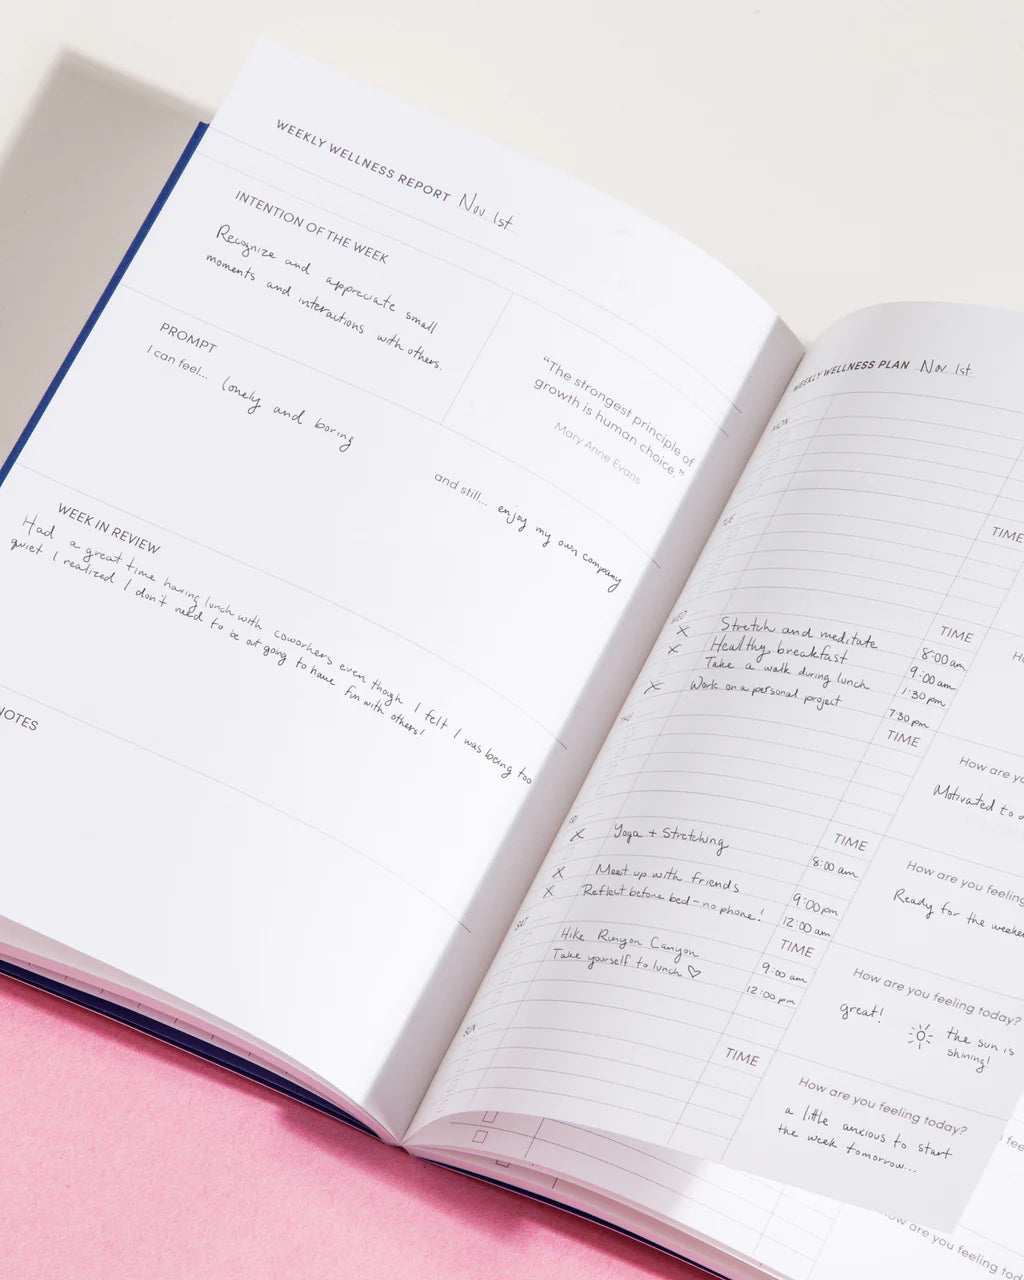 WEEKLY WELLNESS REPORT Nov 1st
INTENTION OF THE WEEK
Recognize and appreciate small
moments and interactions with others.
"The strongest principle of
growth is human choice."
Mary Anne Evans
PROMPT
I can feel... lonely and boring
and still... enjoy my own company
WEEK IN REVIEW
Had a great time having lunch with coworkers even though I felt I was being too
quiet I realized I don't need to be out going to have fun with others!
NOTES
WEEKLY WELLNESS PLAN Nov 1st
MON
TIME
TUE
TIME
WED
X Stretch and meditate 8:00 am
X Healthy breakfast 9:00 am
Take a walk during lunch 1:30 pm
X Work on a personal project 7:30 pm
THU
TIME
How are yo
Motivated to
FRI
TIME
X Yoga + Stretching 8:00 am
X Meet up with friends 9:00 pm
X Reflect before bed - no phone! 12:00 am
How are you feeling
Ready for the weeke
SAT
TIME
Hike Runyon Canyon 9:00 am
Take yourself to lunch ♡ 12:00 pm
How are you feeling today?
great!
the sun is
shining!
SUN
TIME
How are you feeling today?
a little anxious to start
the week tomorrow...
ow are you feeling tod